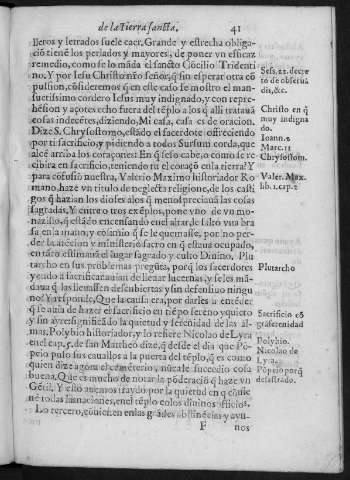 de la Tierra sancta. 41
lleros y letrados suele caer. Grande y estrecha obliga-
ció tiené los perlados y mayores, de poner vn efficaz
remedio, como se lo máda el sancto Cócilio Tridenti
no. Y por Iesu Christo nr̃o señor, q̃ sin esperar otra có
pulsion, cósideremos q̃ en este caso se mostro el man-
suetissimo cordero Iesus muy indignado, y con repre-
hésion y açotes echo fuera del téplo a los q̃ alli tratauá
cosas indecétes, diziendo, Mi casa, casa es de oracion.
Dize S. Chrysostomo, estádo el sacerdote offreciendo
por ti sacrificio, y pidiendo a todos Sursum corda, que
alcé arriba los coraçones: En q̃ seso cabe, o como se re-
cibira en sacrificio, teniendo tu el coraçó en la tierra? Y
para cófusió nuestra, Valerio Maximo historiador Ro
mano, haze vn titulo de neglecta religione, de los casti
gos q̃ hazian los dioses a los q̃ menospreciauá las cosas
sagradas. Y entre otros exéplos, pone vno de vn mo-
nazillo, q̃ estádo encensando en el altar, le saltó vna bra
sa en la mano, y cómo q̃ se le quemasse, por no per-
der la atécion y ministerio sacro en q̃ estaua ocupado,
en táto estimauá el lugar sagrado y culto Diuino. Plu
tarcho en sus problemas pregúta, porq̃ los sacerdotes
yendo a sacrificar auian de lleuar lucernas, y se les má-
daua q̃ las lleuassen descubiertas y sin defensiuo ningu
no? Y respóde, Que la causa era, por darles a enteder
q̃ se auia de hazer el sacrificio en tiépo sereno y quieto
y sin ayres significádo la quietud y serenidad de las al-
mas. Polybio historiador, y lo refiere Nicolao de Lyra
en el cap. 5. de san Mattheo dize, q̃ desde el dia que Pó-
peio puso sus cauallos a la puerta del téplo, q̃ es como
quien dize agora el cemẽterio, núca le sucedio cosa
buena. Que es mucho de notar la póderació q̃ haze vn
Gétil. Y esto auemos traydo por la quietud en q̃ cóuie
né todas las naciones, en el téplo en los diuinos officios.
Lo tercero, cóuiené en las grádes abstinécias y ayu-
F nos
Sess. 22. decre
to de obserua
dis, &c.
Christo en q̃
muy indigna
do.
Ioann. 2
Marc. 11
Chrysostom.
Valer. Max.
lib. 1. cap. 2
Plutarcho
Sacrificio có
gra serenidad
Polybio.
Nicolao de
Lyra.
Pópeio porq̃
desastrado.